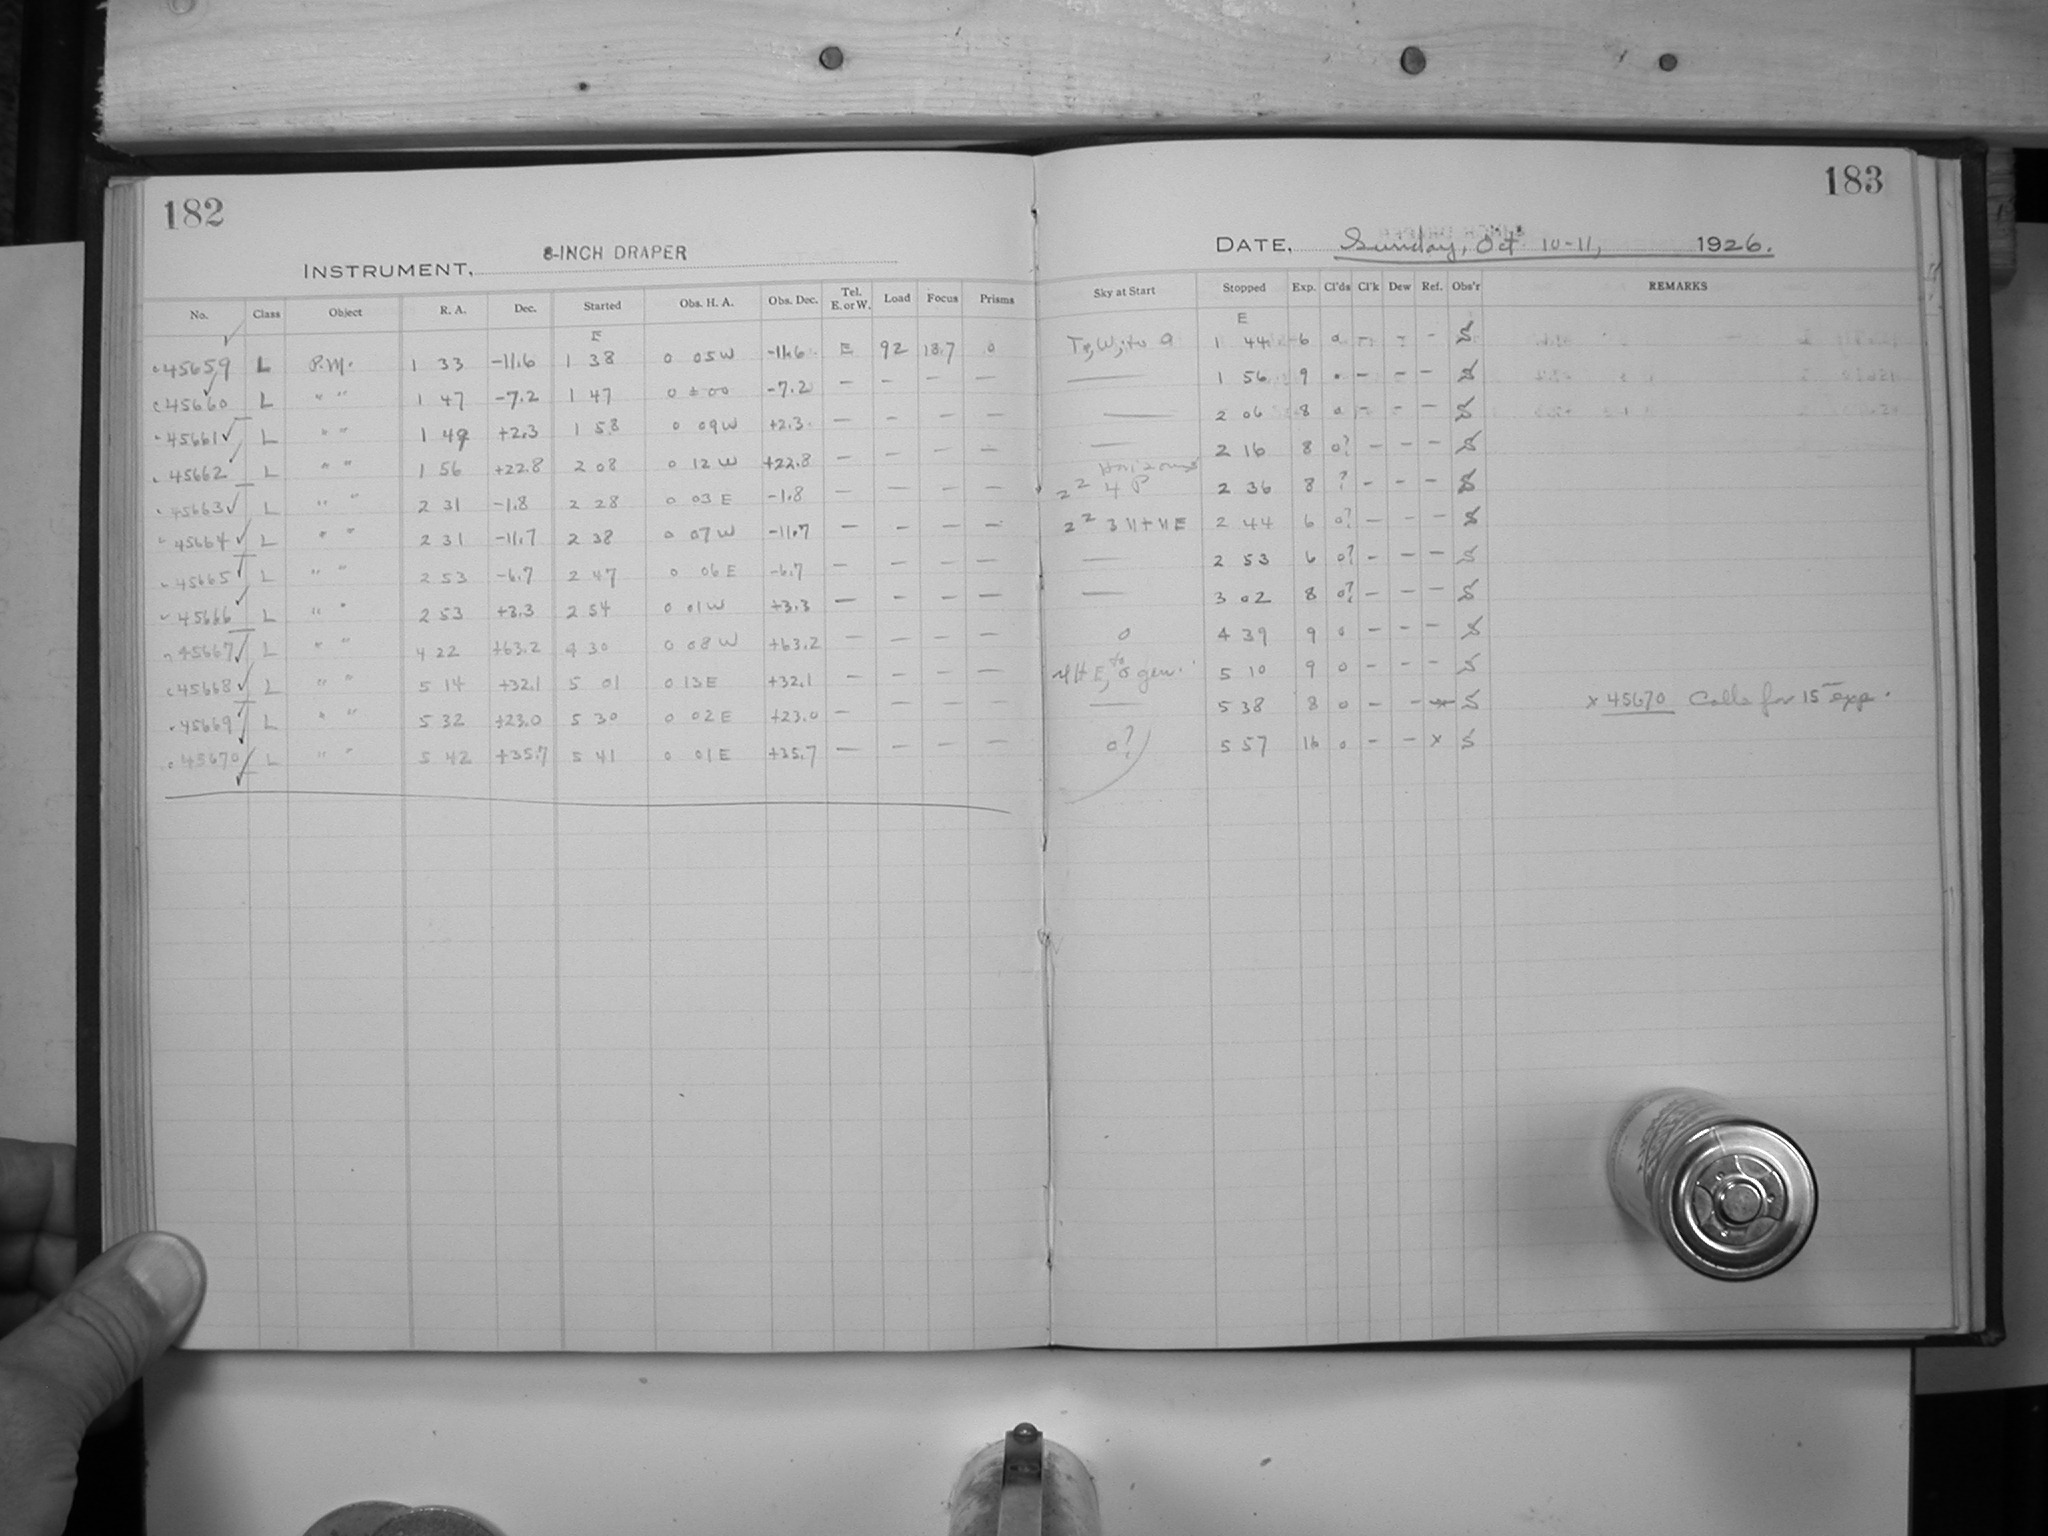 182
INSTRUMENT, 8-INCH DRAPER
No. Class Object R. A. Dec. Started Obs. H. A. Obs. Dec. Tel. E. or W. Load Focus Prisms
E
45659 L P.M. 1 33 -11.6 1 38 0 05 W -11.6 E 92 18.7 0
45660 L " " 1 47 -7.2 1 47 0 ± 00 -7.2 — — — —
45661 L " " 1 49 +2.3 1 58 0 09 W +2.3 — — — —
45662 L " " 1 56 +22.8 2 08 0 12 W +22.8 — — — —
45663 L " " 2 31 -1.8 2 28 0 03 E -1.8 — — — —
45664 L " " 2 31 -11.7 2 38 0 07 W -11.7 — — — —
45665 L " " 2 53 -6.7 2 47 0 06 E -6.7 — — — —
45666 L " " 2 53 +3.3 2 54 0 01 W +3.3 — — — —
45667 L " " 4 22 +63.2 4 30 0 08 W +63.2 — — — —
45668 L " " 5 14 +32.1 5 01 0 13 E +32.1 — — — —
45669 L " " 5 32 +23.0 5 30 0 02 E +23.0 — — — —
45670 L " " 5 42 +35.7 5 41 0 01 E +35.7 — — — —
183
DATE, Sunday, Oct 10-11, 1926.
Sky at Start Stopped Exp. Cl'ds Cl'k Dew Ref. Obs'r REMARKS
E
1 44 6 0 — — — S
— 1 56 9 — — — S
— 2 06 8 0 — — — S
— 2 16 8 0? — — — S
2 36 8 ? — — — S
2 44 6 0? — — — S
— 2 53 6 0? — — — S
— 3 02 8 0? — — — S
0 4 39 9 0 — — — S
5 10 9 0 — — — S
— 5 38 8 0 — — S x 45670 Calls for 15 exp.
0? 5 57 16 0 — — x S